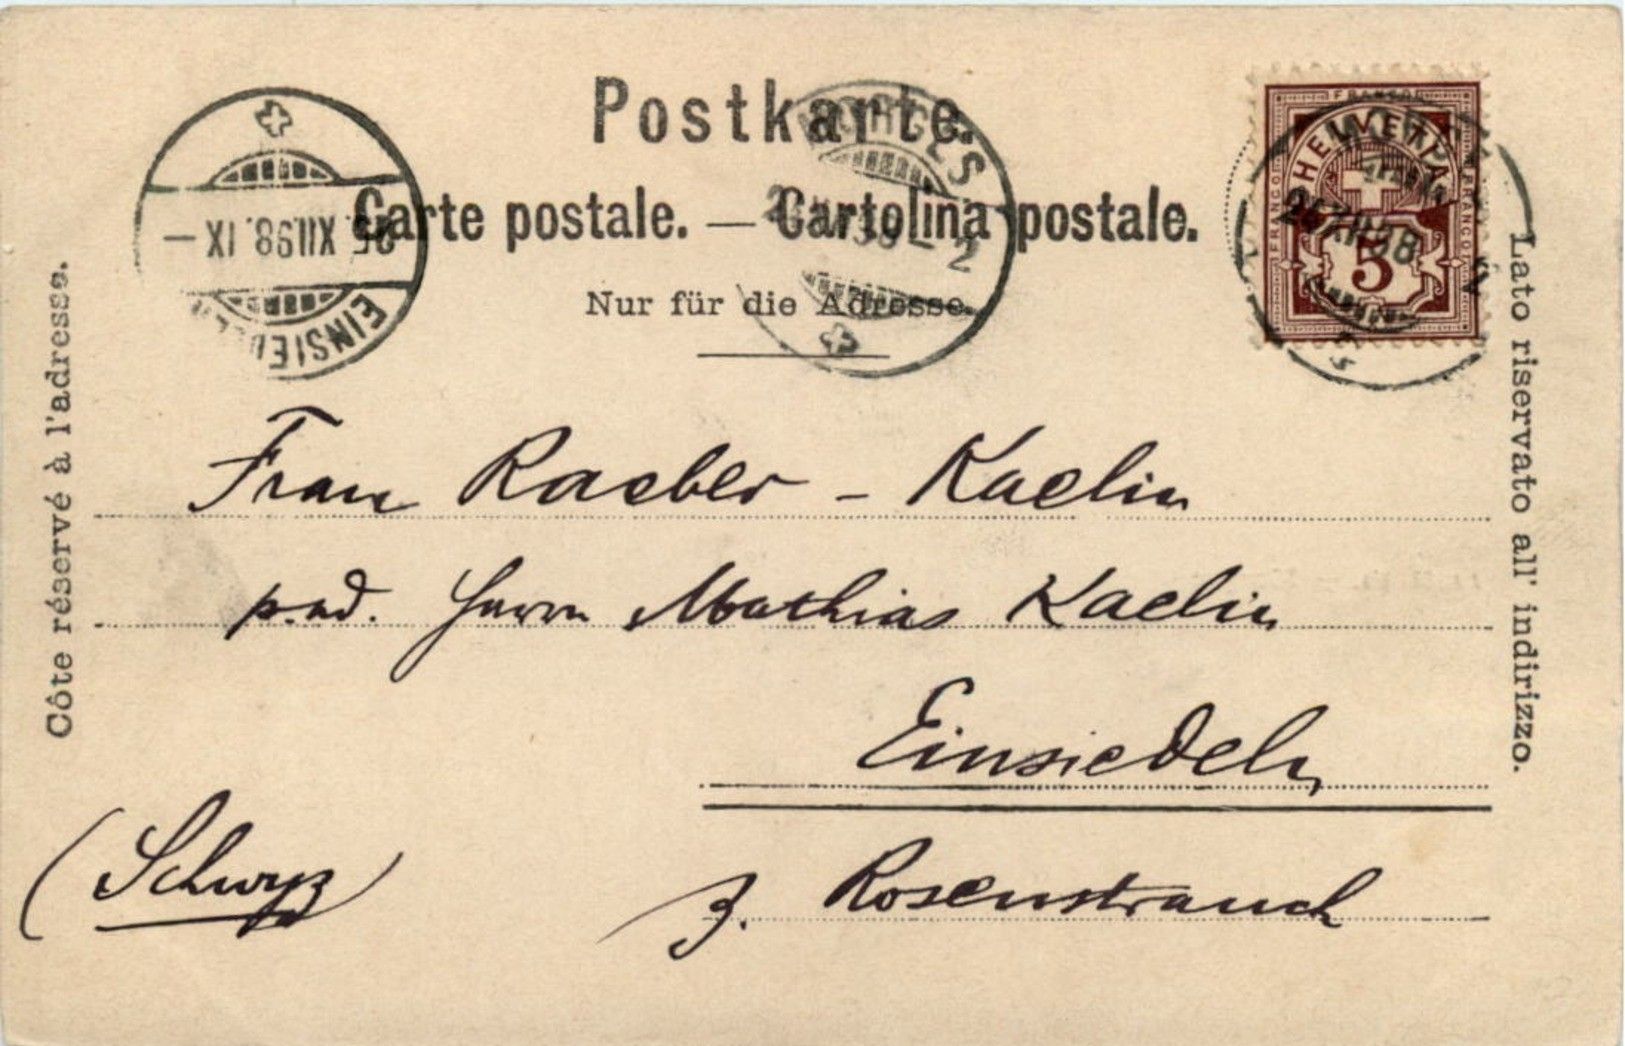 Postkarte.
Carte postale. — Cartolina postale.
Nur für die Adresse.
Côte réservé à l'adresse.
Lato riservato all' indirizzo.
EINSIEDELN
25. XII.98. IX –
MORGES
2
FRANCO
HELVETIA
FRANCO
FRANCO
5
XII 98
2
Frau Raeber - Kaelin
p. ad. Herrn Mathias Kaelin
Einsiedeln
z. Rosenstrauch
(Schwyz)